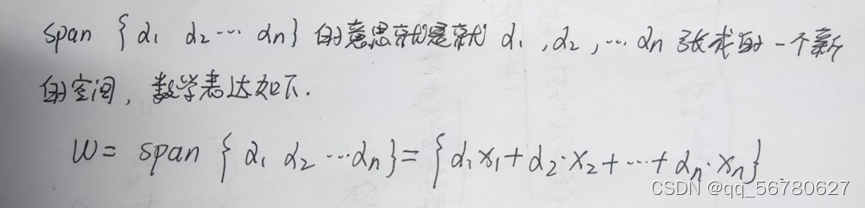 span {α₁ α₂ ⋯ αn} 的意思就是就 α₁ ,α₂ , ⋯ αn 张成的一个新
的空间, 数学表达如下.
W = span { α₁ α₂ ⋯αn} = {α₁x₁+α₂·x₂+⋯+αn·xn}
CSDN @qq_56780627